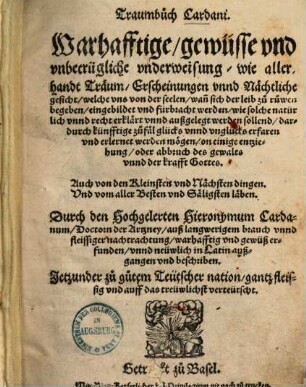 Traumbůch Cardani.
Warhafftige/gewüsse vnd
vnbeerügliche vnderweisung/wie aller,
handt Träum/Erscheinungen vnnd Nächtliche
gesicht/welche vns von der seelen/wañ sich der leib zů rüwen
begeben/eingebildet vnd fürbracht werden/wie solche natür
lich vnnd recht erklärt vnnd außgelegt werden sollend/dar-
durch künfftige zůfäl glücks vnnd vnglücks erfaren
vnd erlernet werden mögen/on einige entzie
hung/oder abbruch des gewalts
vnnd der krafft Gottes.
Auch von den Kleinsten vnd Nächsten dingen.
Vnd vom aller Besten vnd Säligsten läben.
Durch den Hochgelerten Hieronymum Carda-
num/Doctorn der Artzney/auß langwerigem brauch vnnd
fleissiger nachtrachtung/warhafftig vnd gewüß er-
funden/vnnd neüwlich in Latin auß-
gangen vnd beschriben.
Jetzunder zů gůtem Teütscher nation/gantz fleis-
sig vnd auff das treüwlichst verteütscht.
AUGSBURG
Getr te zů Basel.